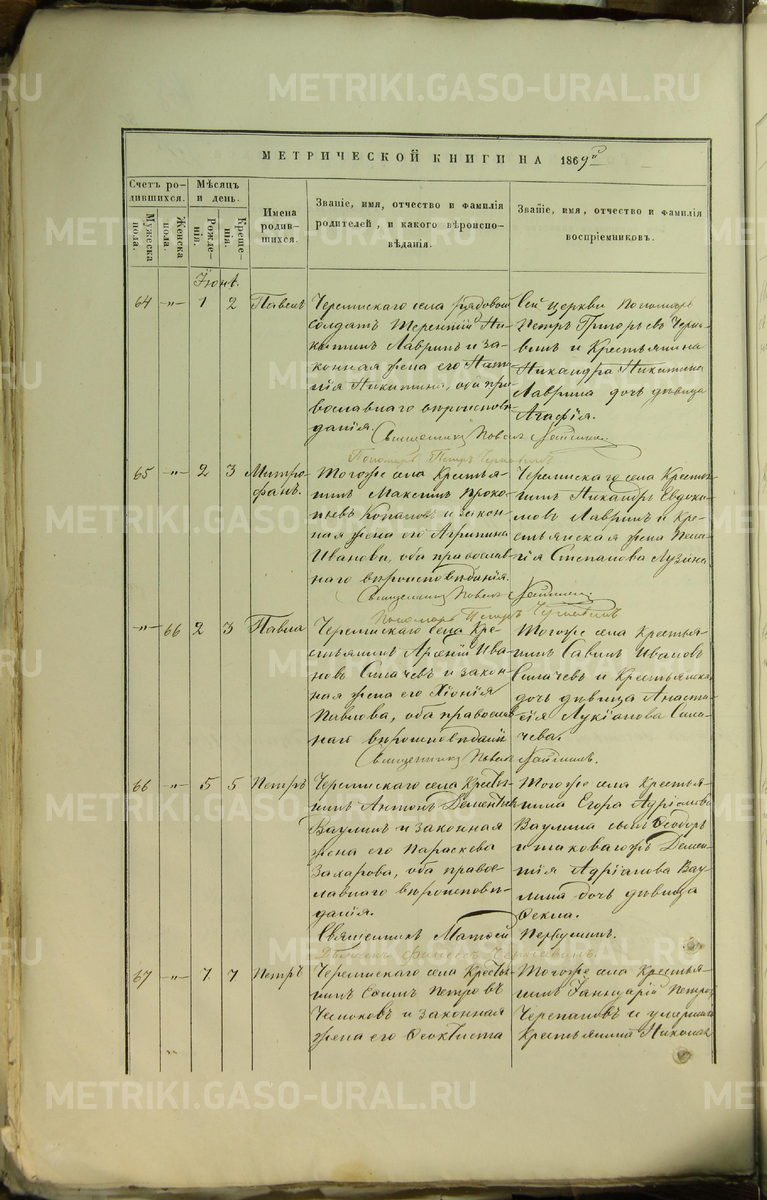 METRIKI.GASO-URAL.RU
МЕТРИЧЕСКОЙ КНИГИ НА 1869й
Счетъ родившихся.
Мужеска пола.
Женска пола.
Мѣсяцъ и день.
Рожденія.
Крещенія.
Имена родившихся.
Званіе, имя, отчество и фамилія родителей, и какого вѣроисповѣданія.
Званіе, имя, отчество и фамилія воспріемниковъ.
64 -"- 1 2 Павелъ
Черемискаго села рядовой
солдатъ Терентій Ни-
китинъ Лавринъ и за-
конная жена его
Никитина, оба пра-
вославнаго вѣроисповѣ-
данія.
Сей церкви пономарь
Петръ Григорьевъ
и крестьянина
Никандра Никитина
Лаврина дочь дѣвица
Агафія.
Священникъ Павелъ
65 -"- 2 3 Митро-
фанъ.
Тогоже села крестья-
нинъ Максимъ Проко-
пьевъ и закон-
ная жена его Агрипина
Иванова, оба православ-
наго вѣроисповѣданія.
Черемискаго села крестья-
нинъ Никандръ Евдоки-
мовъ Лавринъ и кре-
стьянская жена Пела-
гія Степанова
Священникъ Павелъ
Пономарь Петръ
-"- 66 2 3 Павла
Черемискаго села кре-
стьянинъ Арсеній Ива-
новъ Силачевъ и закон-
ная жена его Хіонія
Павлова, оба православ-
наго вѣроисповѣданія
Тогоже села крестья-
нинъ Савинъ Ивановъ
Силачевъ и крестьянская
дочь дѣвица Анаста-
сія Лукіанова Сила-
чева.
Священникъ Павелъ
66 -"- 5 5 Петръ
Черемискаго села крестья-
нинъ Антонъ Дементьевъ
Ваулинъ и законная
жена его Параскева
Захарова, оба право-
славнаго вѣроисповѣ-
данія.
Тогоже села крестья-
нина Егора Адріанова
Ваулина сынъ Ѳеодоръ
и таковагожъ Демен-
тія Адріанова Вау-
лина дочь дѣвица
Ѳекла.
Священникъ Матѳей
67 -"- 7 7 Петръ
Черемискаго села крестья-
нинъ Петровъ
Чесноковъ и законная
жена его Ѳеоктиста
Тогоже села крестья-
нинъ Іаннуарій Петровъ
Черепановъ и умершаго
крестьянина Николая